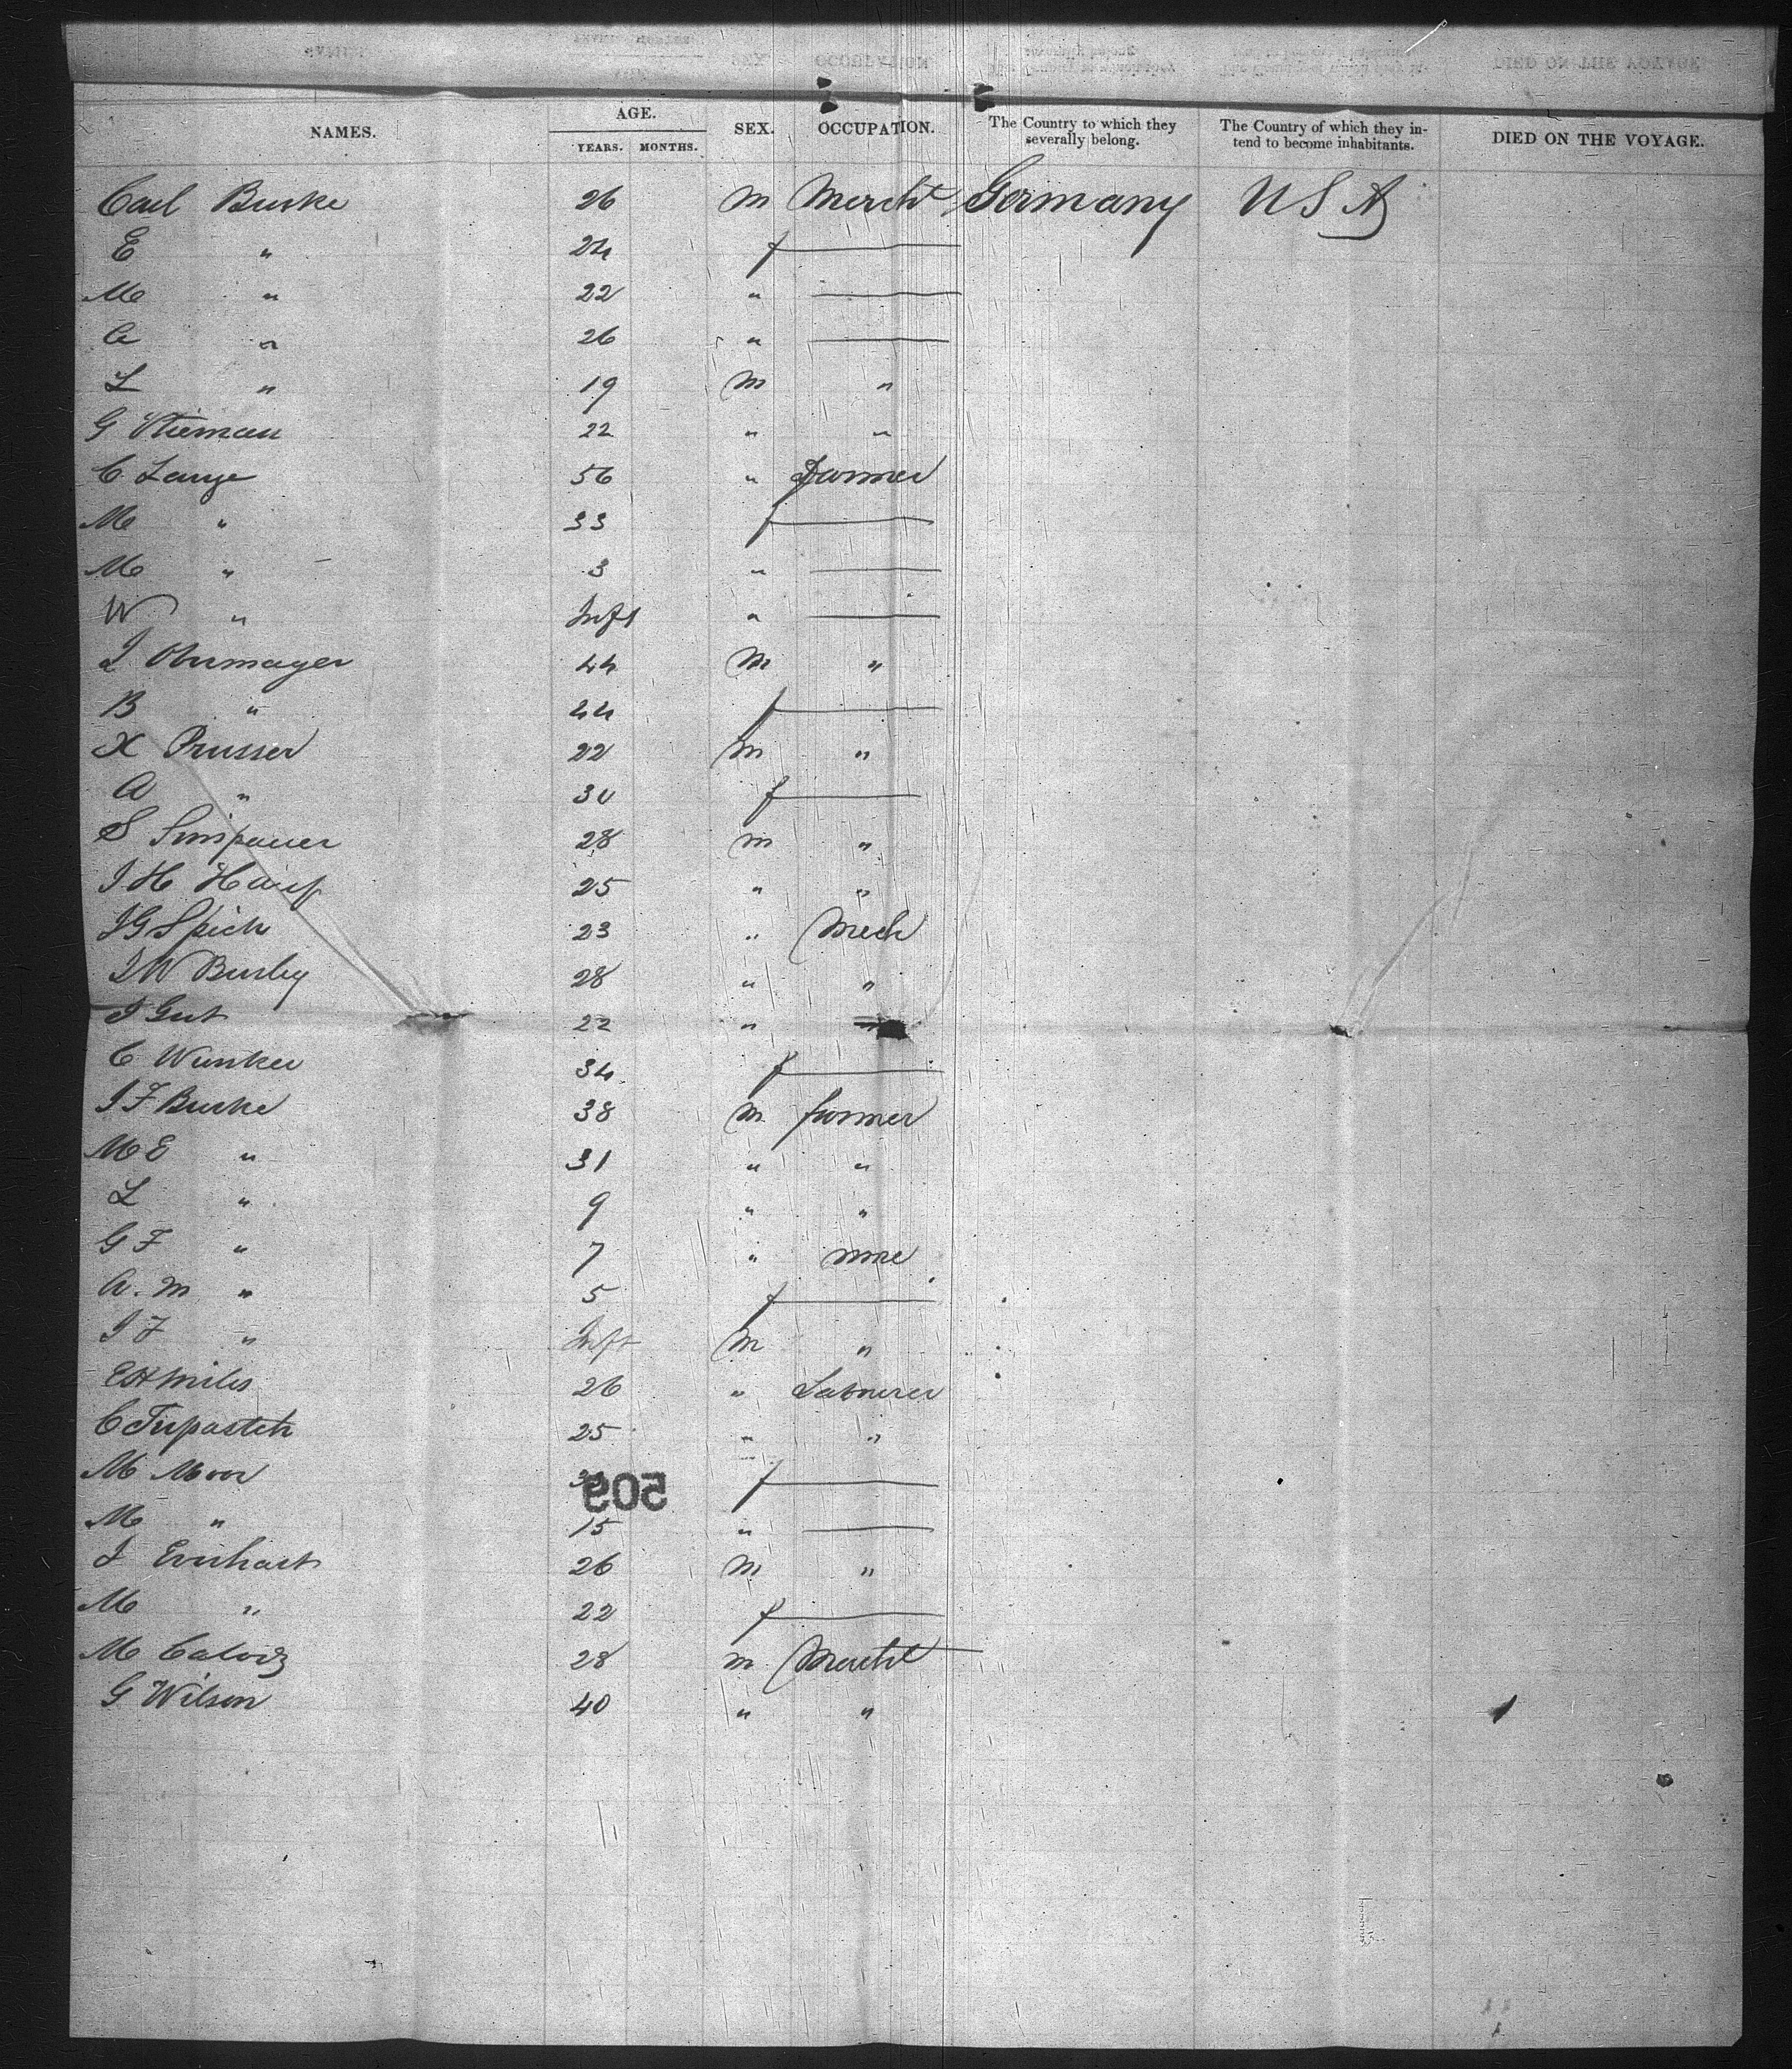 NAMES. AGE. YEARS. MONTHS. SEX. OCCUPATION. The Country to which they severally belong. The Country of which they intend to become inhabitants. DIED ON THE VOYAGE.
Carl Burke 26 M Mercht Germany USA
E " 24 f
M " 22 "
C " 26 "
L " 19 M "
G 22 " "
C Lange 56 " Farmer
M " 33 f
M " 3 "
W " Inft "
I Obermayer 44 M "
B " 44 f
X Prusser 22 M "
A " 30 f
S 28 m "
I H Hauf 25 " "
I G Spich 23 " Mech
I W Burley 28 " "
I Gut 22 " "
C Wunker 34 f
I F Burke 38 M farmer
M E " 31 " "
L " 9 " "
G F " 7 " none
A. M " 5 f
I F " Inft M "
E H Miles 26 " Labourer
C 25 " "
M Moor f
509
M " 15 "
I Everhart 26 M "
M " 22 f
M 28 M Mercht
G Wilson 40 " "